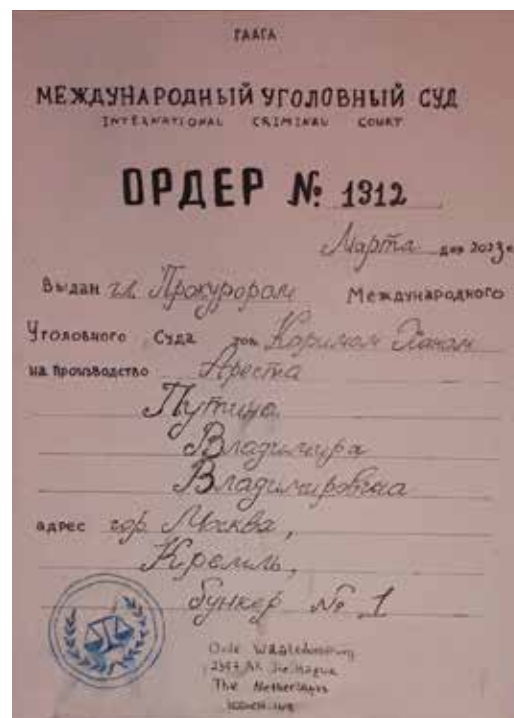 ГААГА
МЕЖДУНАРОДНЫЙ УГОЛОВНЫЙ СУД
INTERNATIONAL CRIMINAL COURT
ОРДЕР №: 1312
Марта дня 2023 г
Выдан гл. Прокурором Международного
Уголовного Суда тов. Каримом Ханом
на производство Ареста
Путина
Владимира
Владимировича
адрес гор. Москва,
Кремль,
бункер № 1
Oude Waalsdorperweg
2597 AK The Hague
The Netherlands